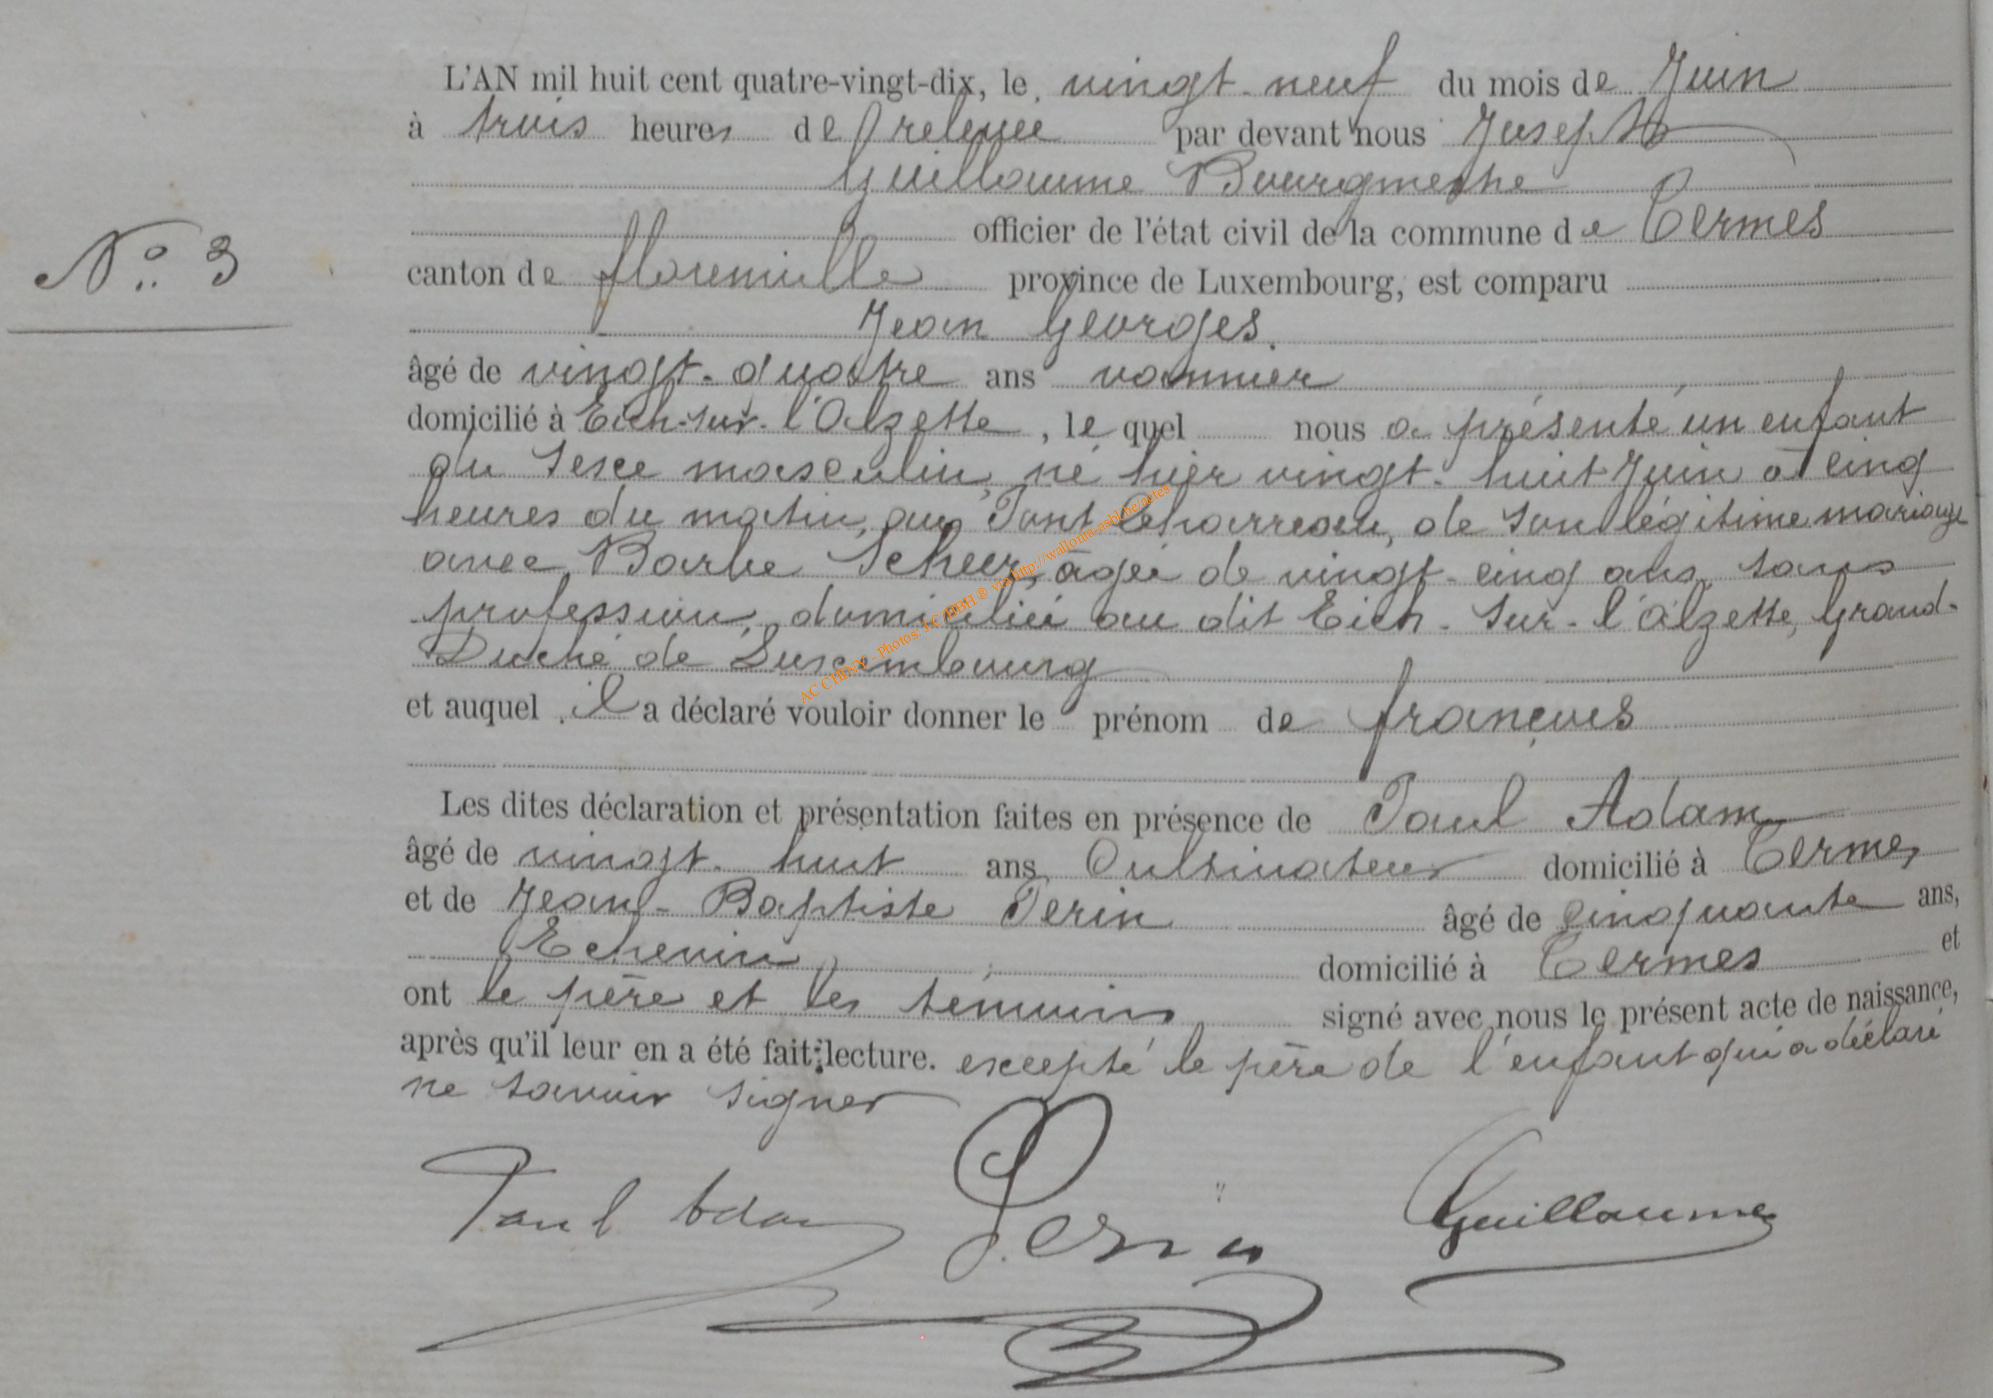 L'AN mil huit cent quatre-vingt-dix, le vingt-neuf du mois de Juin
à trois heures de relevée par devant nous Joseph
Guillaume Bourgmestre
officier de l'état civil de la commune de Termes
N° 3
canton de florenville province de Luxembourg, est comparu
Jean Georges.
âgé de vingt-quatre ans vannier
domicilié à Eich-sur-l'Alzette, le quel nous a présenté un enfant
du sexe masculin, né hier vingt-huit Juin à cinq
heures du matin, au Pont Charreau, de son légitime mariage
avec Barbe Scheer, âgée de vingt-cinq ans, sans
profession, domiciliée au dit Eich-sur-l'Alzette, Grand-
Duché de Luxembourg
et auquel il a déclaré vouloir donner le prénom de françois
Les dites déclaration et présentation faites en présence de Paul Adam
âgé de vingt-huit ans, Cultivateur domicilié à Termes
et de Jean-Baptiste Perin âgé de cinquante ans,
Echevin, domicilié à Termes et
ont le père et les témoins signé avec nous le présent acte de naissance,
après qu'il leur en a été fait lecture. excepté le père de l'enfant qui a déclaré
ne savoir signer
Paul Adam Perin Guillaume